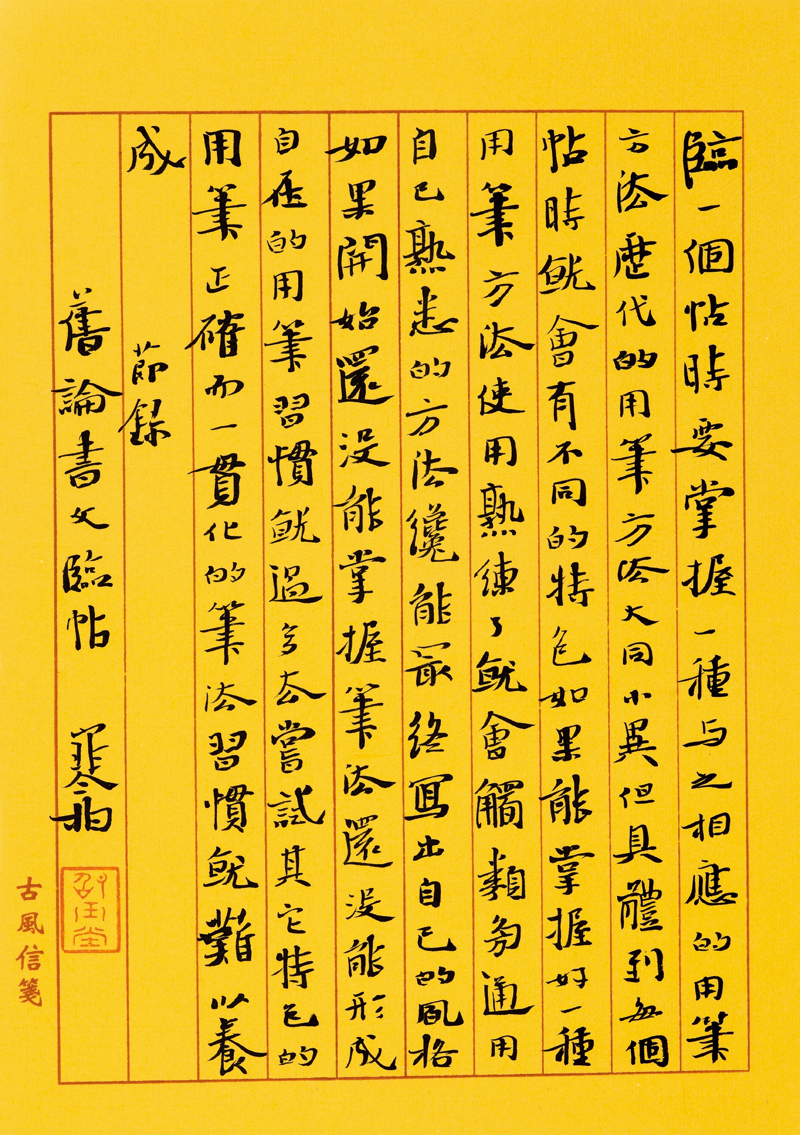 臨一個帖時要掌握一種与之相應的用筆
方法歷代的用筆方法大同小異但具體到每個
帖時就會有不同的特色如果能掌握好一種
用筆方法使用熟練了就會觸類旁通用
自己熟悉的方法纔能最終寫出自己的風格
如果開始還没能掌握筆法還没能形成
自在的用筆習慣就過多去嘗試其它特色的
用筆正確而一貫化的筆法習慣就難以養
成
節錄
舊論書文臨帖
古風信箋